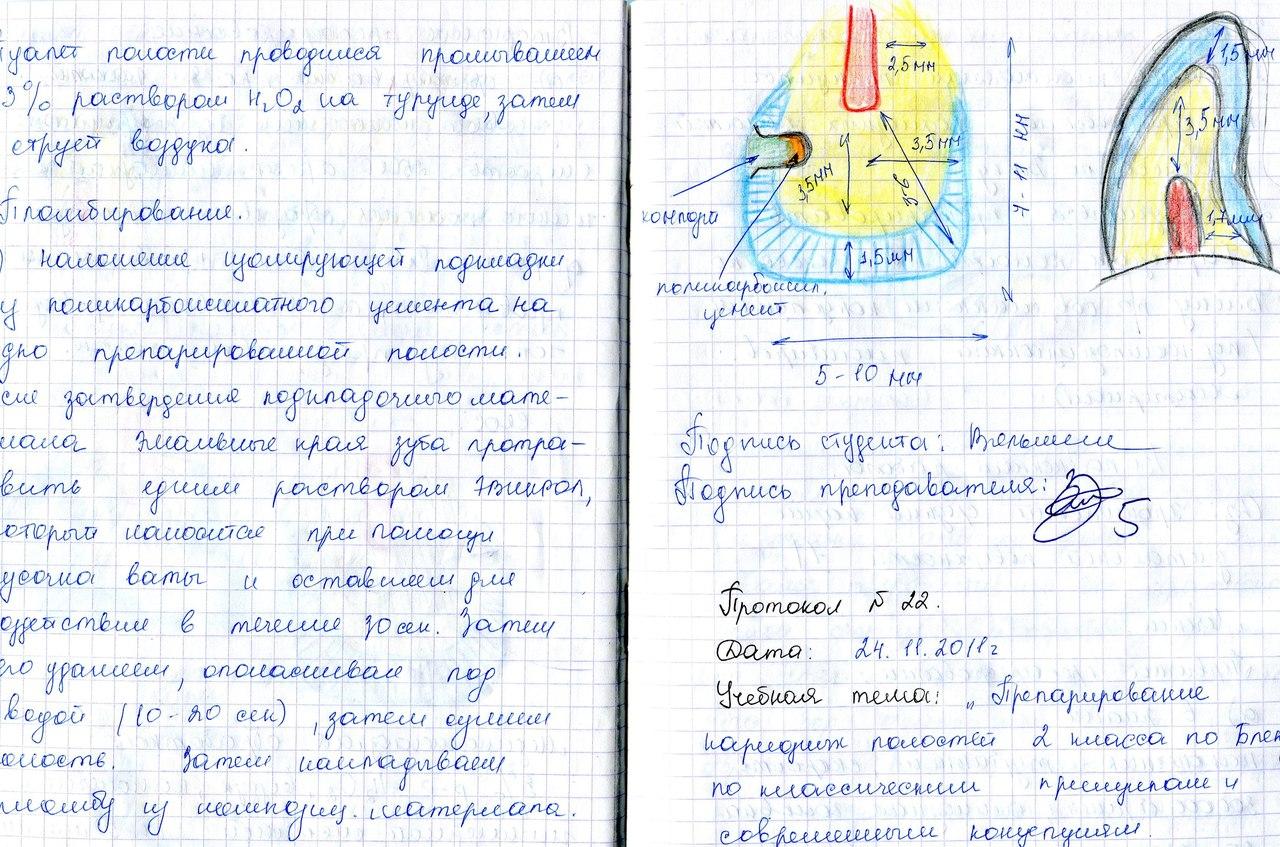 туалет полости проводился промыванием
3% раствором H₂O₂ на турунде, затем
струей воздуха.
Пломбирование.
) наложение изолирующей подкладки
из поликарбоксилатного цемента на
дно препарированной полости.
сле затвердения подкладочного мате-
иала Эмалевые края зуба протра-
вить едким раствором Эвикрол,
оторый наносится при помощи
усочка ваты и оставляем для
оздействия в течение 30 сек. Затем
го удаляем, ополаскивая под
водой (10-20 сек), затем сушим
олость. Затем накладываем
пломбу из композиц. материала.
2,5мм
3,5мм
3,5мм
5-6
1,5мм
композ
поликарбоксил.
цемент
5-10 мм
7-11 мм
1,5мм
3,5мм
1,7мм
Подпись студента:
Подпись преподавателя:
5
Протокол № 22.
Дата: 24.11.2011г
Учебная тема: „Препарирование
кариозных полостей 2 класса по Блек
по классическим принципам и
современным концепциям.